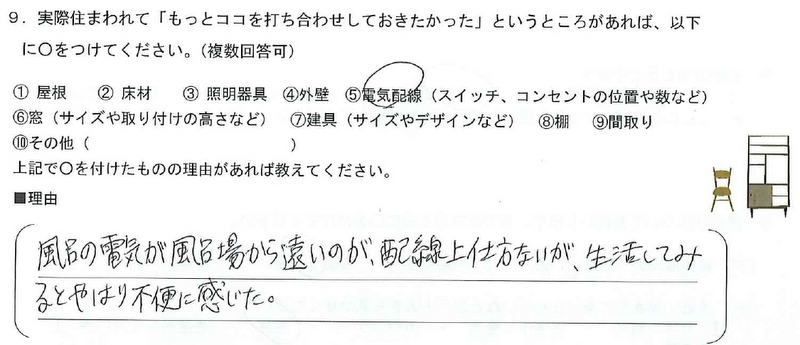 9．実際住まわれて「もっとココを打ち合わせしておきたかった」というところがあれば、以下
に〇をつけてください。（複数回答可）
① 屋根　② 床材　③ 照明器具　④外壁　⑤電気配線（スイッチ、コンセントの位置や数など）
⑥窓（サイズや取り付けの高さなど）　⑦建具（サイズやデザインなど）　⑧棚　⑨間取り
⑩その他（　　　　　　　　　　）
上記で〇を付けたものの理由があれば教えてください。
■理由
風呂の電気が風呂場から遠いのが、配線上仕方ないが、生活してみ
るとやはり不便に感じた。